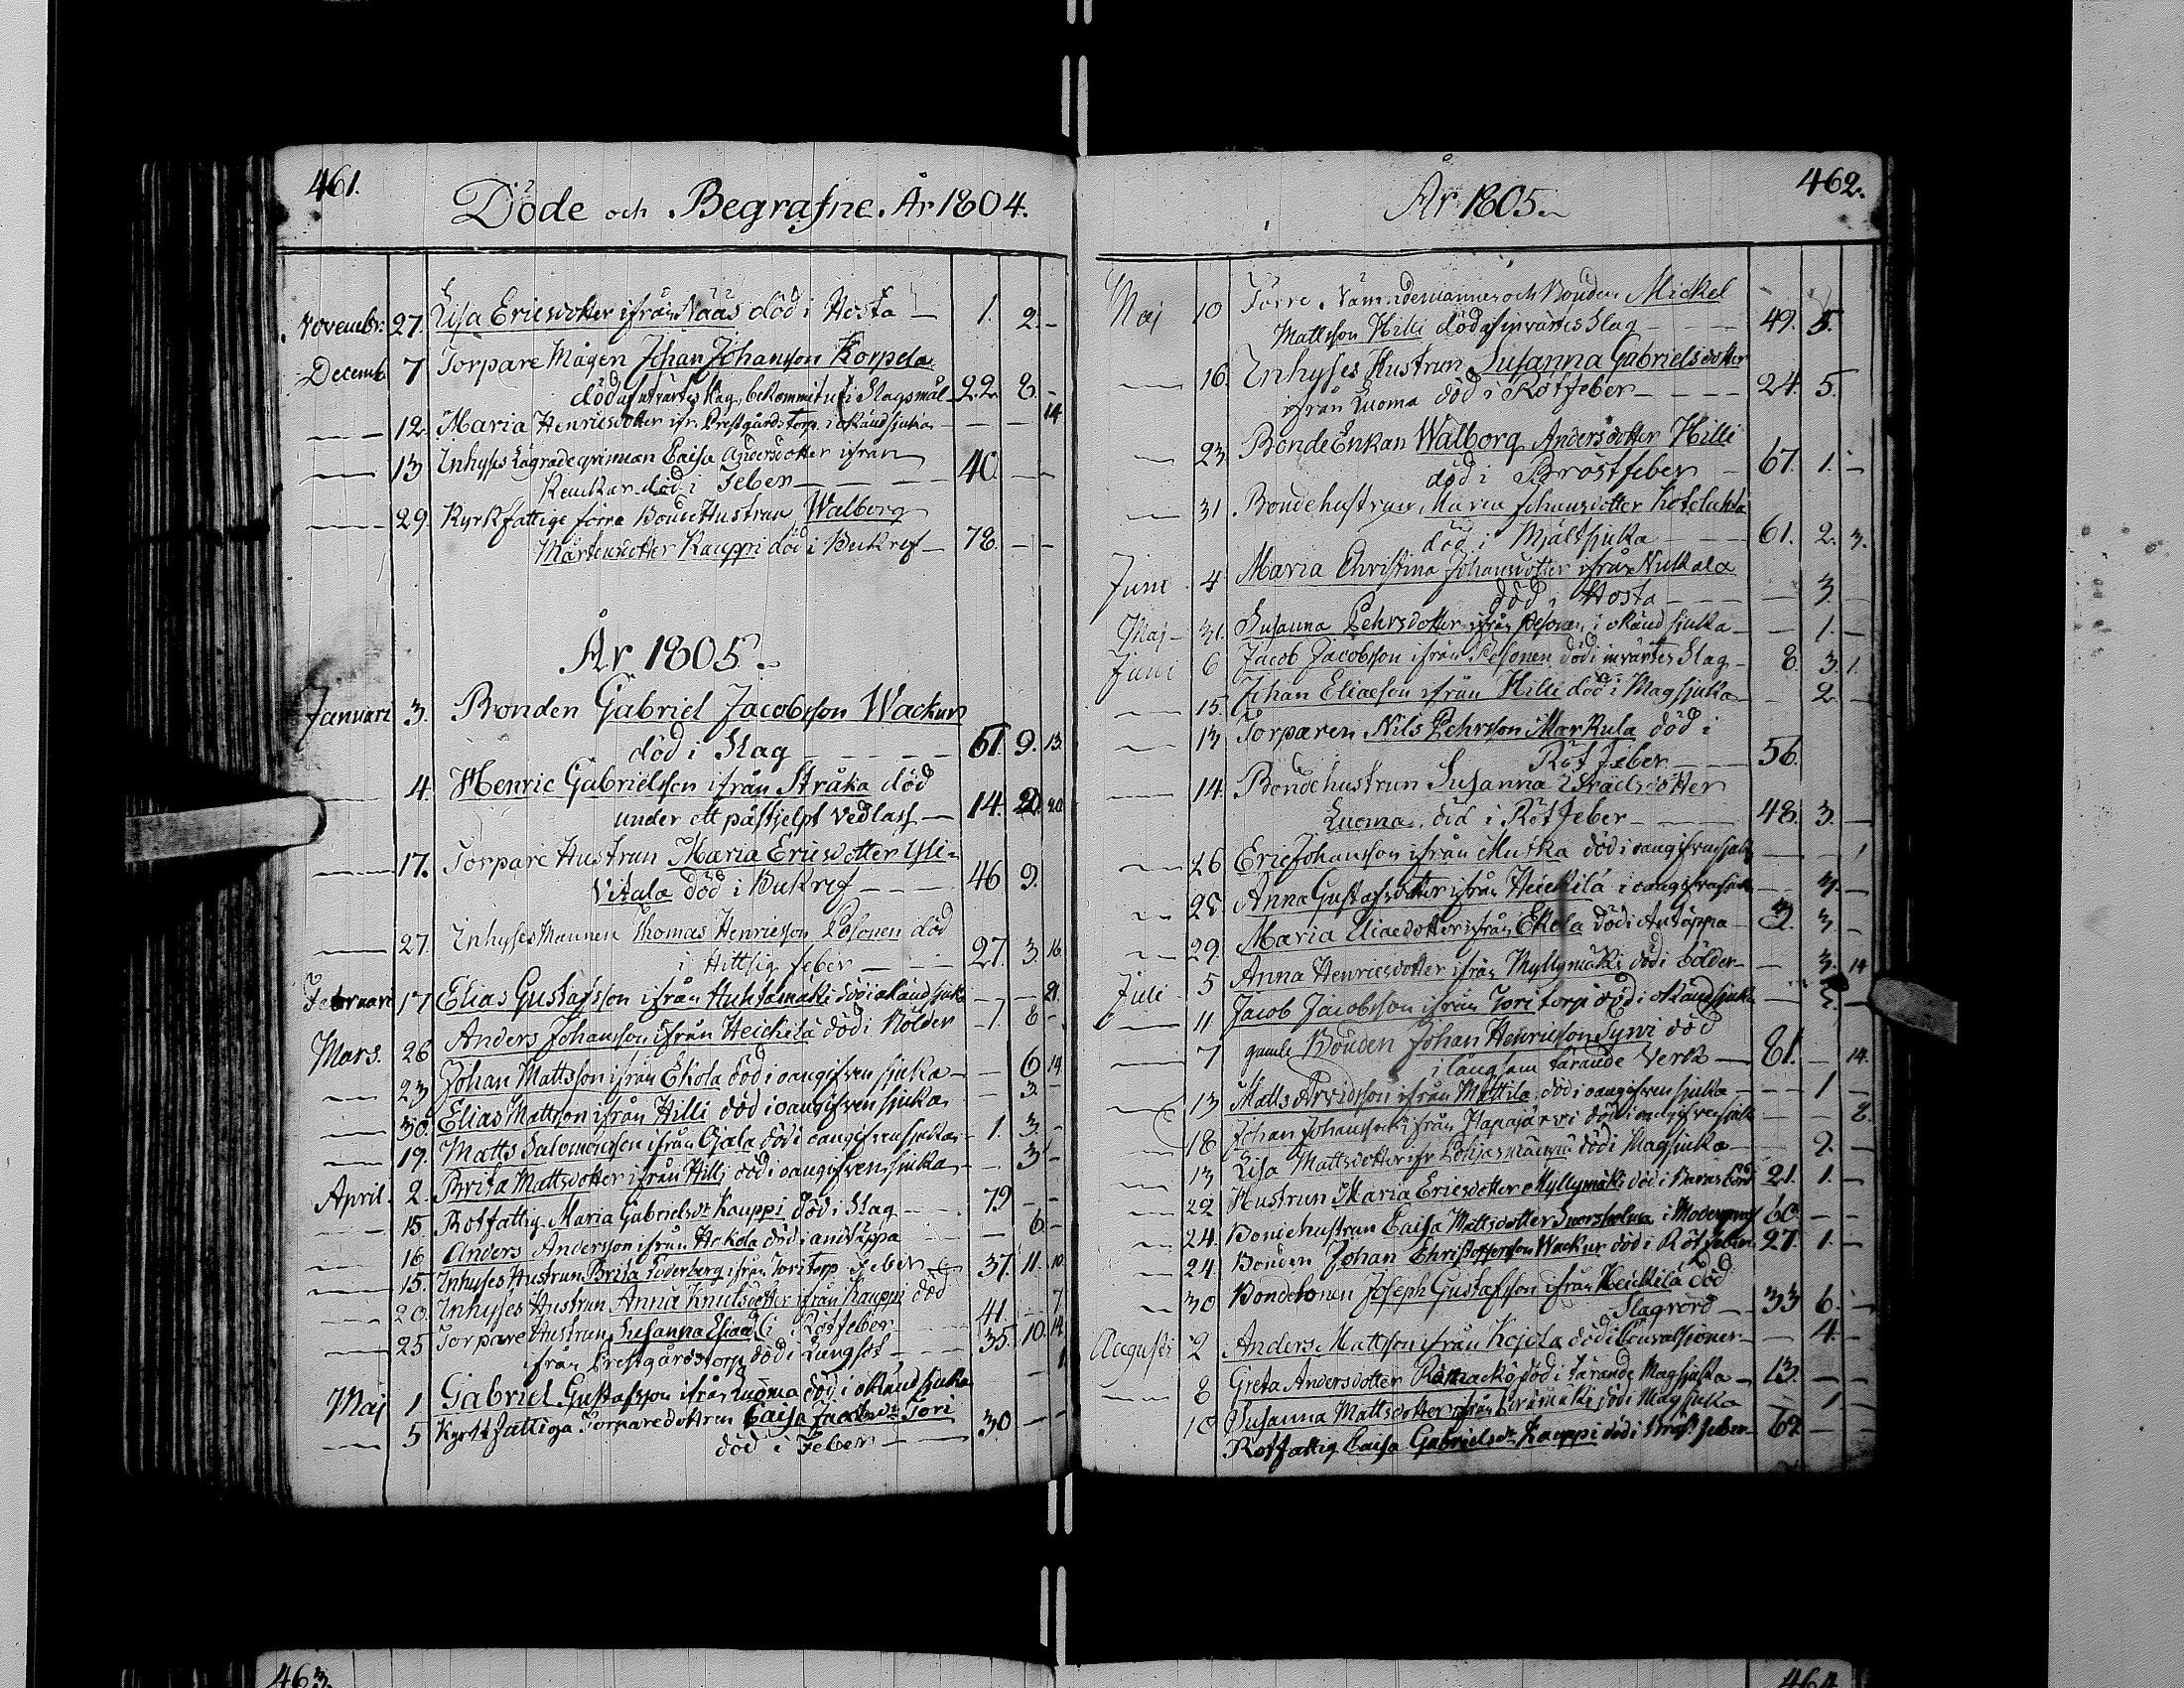 461.
Döde och Begrafne. År 1804.
Novembr: 27. Lisa Ericsdotter ifrån Näås död i Hosta — 1. 2. -
Decemb. 7 Torpare Mågen Johan Johansson Korpela
död af utvärtes slag, bekommit uti Slagsmål - 22. 8. -
— 12. Maria Henricsdotter ifr. Prestgårds torp. i okänd sjuka - — — 14
— 13 Inhyses Caisa Andersdotter ifrån
död i Feber — 40. — -
— 29 Kyrkfattige förra Bonde Hustrun Walborg
Mårtensdotter Kauppi död i Bukref — 78. - -
År 1805.
Januari 3. Bonden Gabriel Jacobsson Wackur
död i Slag — 61. 9. 13.
— 4. Henric Gabrielsson ifrån Stråka död
under ett påstjelpt vedlass — 14. 20
— 17. Torpare Hustrun Maria Ericsdotter Yli=
Vitala död i Bukref — 46 9.
— 27 Inhyses Mannen Thomas Henricsson Pesonen död
i Hittsig feber — 27. 3 16.
Februari 17 Elias Gustafsson ifrån Huhtamäki död i okänd sjuka — — 21.
Mars. 26 Anders Johansson ifrån Heickilä död i Bölder - 1. 8 -
— 23 Johan Mattsson ifrån Ekola död i oangifven sjuka — — 6 14.
— 30. Elias Mattsson ifrån Hilli död i oangifven sjuka - 3 -
— 19. Matts Salomonsson ifrån Ojala död i oangifven sjuka - 1. 3 -
April. 2. Brita Mattsdotter ifrån Hilli död i oangifven sjuka - - 3 -
— 15. Rotfattig Maria Gabrielsdr Kauppi död i Slag — 79 - -
— 16 Anders Andersson ifrån Hokola död i andtäppa — 6. -
— 15. Inhyses Hustrun Brita Söderberg ifrån Tori torp Feber 37. 11. 10.
— 20. Inhyses Hustrun Anna Knutsdotter ifrån Kauppi död
i Rötfeber — 41. - 7.
— 25 Torpare Hustrun Susanna Eliaed
ifrån Prestgårdstorp död i Lungsot — 35. 10. 14
Maj 1 Gabriel Gustafsson ifrån Luoma död i okänd sjuka - 1
— 5 Kyrkfattiga Torparedottren Caisa Jacobsdr Tori
död i Feber — 30 - -
462.
År 1805.
Maj 10 Förre Nämndemannen och Bonden Mickel
Mattsson Hilli död af invärtes Slag — 49. 5.
— 16. Inhyses Hustrun Susanna Gabrielsdotter
ifrån Luoma död i Rötfeber — 24. 5.
— 23 Bonde Enkan Walborg Andersdotter Hilli
död i Bröstfeber — 67. 1. -
— 31. Bondehustrun Maria Johansdotter
död i Mjältsjuka — 61. 2. 3.
Juni 4 Maria Christina Johansdotter ifrån Nukala
död i Hosta — — 3. -
Maj 31. Susanna Pehrsdotter ifrån Pesonen i okänd sjuka — — 1. -
Juni 6 Jacob Jacobsson ifrån Pesonen död i invärtes Slag - 8. 3. 1.
— 15. Johan Eliaeson ifrån Hilli död i Magsjuka — - 2. -
— 13 Torparen Nils Pehrsson Markula död i
Röt Feber — 56.
— 14. Bondehustrun Susanna Israelsdotter
Luoma, död i Rötfeber — 48. 3. -
— 26 Eric Johansson ifrån Mutka död i oangifven sjuka — - 1
— 25. Anna Gustafsdotter ifrån Heickilä i oangifven sjuka — 3. -
— 29. Maria Eliaedotter ifrån Ekola död i Antäppa — 3. -
Juli 5 Anna Henricsdotter ifrån Myllymäki död i bölder — — 3. 14
— 11 Jacob Jacobsson ifrån Tori torp död i okänd sjuka —
— 7 gamle Bonden Johan Henricsson Sywi död
i långsam tärande Verk — 81. - 14.
— 13 Matts Arvidsson ifrån Mattila död i oangifven sjuka — - 1 -
— 18 Johan Johansson ifrån Hapajärvi död i oangifven sjuka — - 8.
— 13 Lisa Mattsdotter ifr död i Magsjuka — - 2. -
— 22 Hustrun Maria Ericsdotter Myllymäki död i Barnsbörd 21. 1. -
— 24. Bondehustrun Caisa Mattsdotter i 60. - -
— 24 Bonden Johan Christophersson Wackur död i Rötfeber 27. 1. -
— 30 Bondesonen Joseph Gustafsson ifrån Heickilä död
Slagrörd — 33 6. -
Augusti 2 Anders Mattsson ifrån Kojola död i Convulsioner — — 4. -
— 8 Greta Andersdotter död i tärande Magsjuka — 13. - -
— 18 Susanna Mattsdotter ifrån död i Magsjuka — 1 -
Rotfattig Caisa Gabrielsdr Kauppi död i Bröst feber — 69. - -
463
464